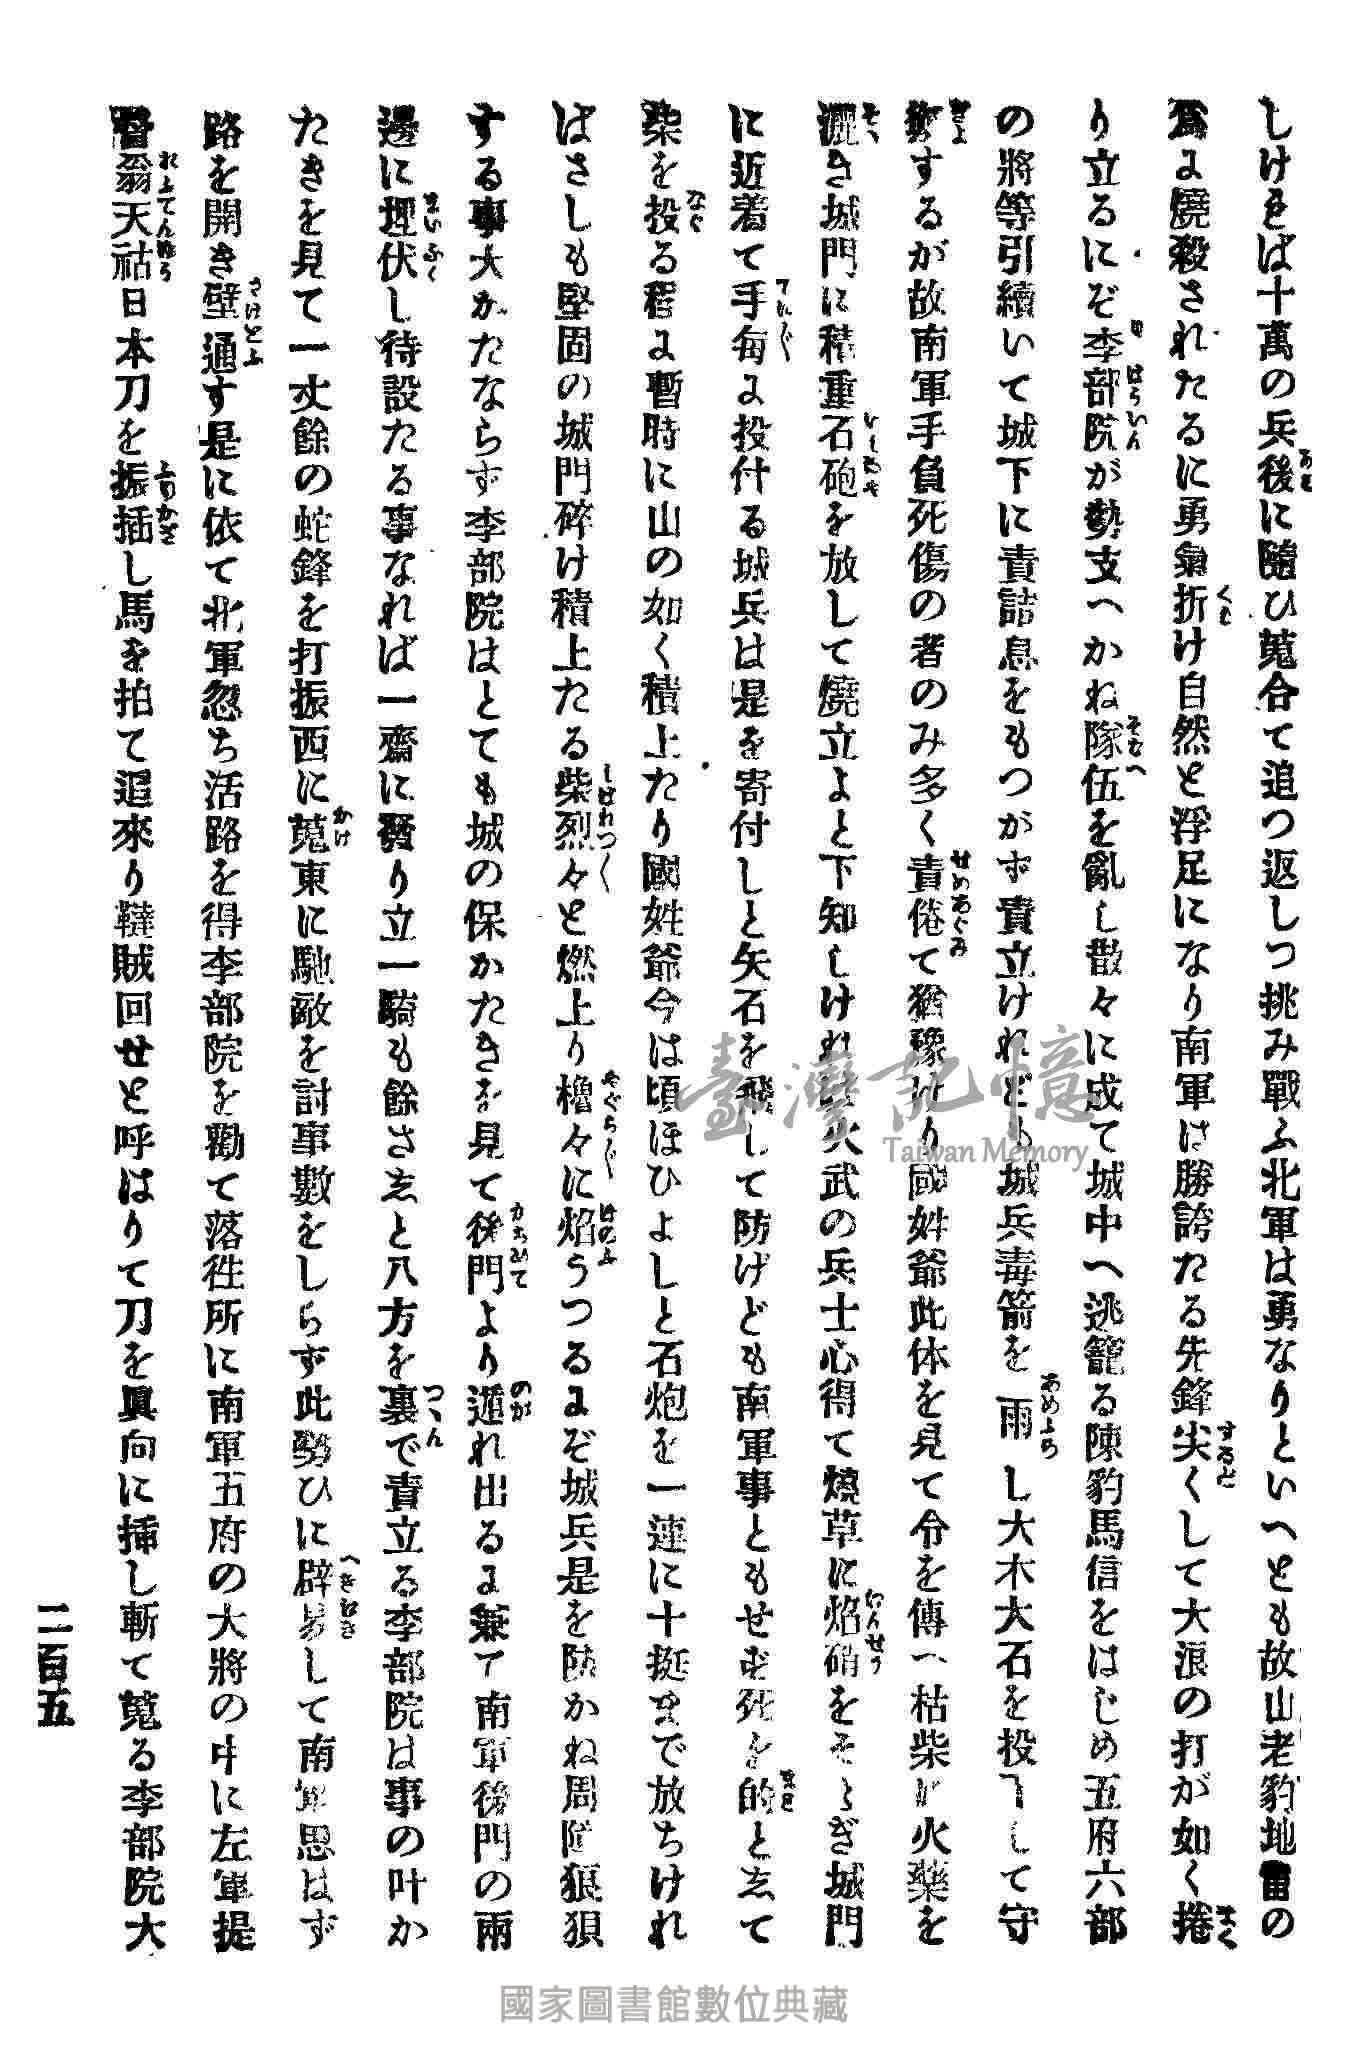 しければ十萬の兵後に隨ひ蒐合て追つ返しつ挑み戰ふ北軍は勇なりといへとも故山老豹地雷の
爲に燒殺されたるに勇氣折け自然と浮足になり南軍は勝誇たる先鋒尖くして大浪の打が如く捲
り立るにぞ李部院が勢支へかね隊伍を亂し散々に成て城中へ逃籠る陳豹馬信をはじめ五府六部
の將等引續いて城下に責詰息をもつがず責立けれども城兵毒箭を雨し大木大石を投下して守
禦するが故南軍手負死傷の者のみ多く責倦て猶豫けり國姓爺此体を見て令を傳へ枯柴に火藥を
灑き城門に積重石砲を放して燒立よと下知しけれは火武の兵士心得て燒草に焰硝をそゝぎ城門
に近着て手毎に投付る城兵は是を寄付しと矢石を飛して防げども南軍事ともせず死を的として
柴を投る程に暫時に山の如く積上たり國姓爺今は頃ほひよしと石炮を一連に十挺まで放ちけれ
ばさしも堅固の城門碎け積上たる柴烈々と燃上り櫓々に焰うつるにぞ城兵是を防かね周障狼狽
する事大かたならず李部院はとても城の保かたきを見て後門より遁れ出るに兼て南軍後門の兩
邊に埋伏し待設たる事なれば一齋に發り立一騎も餘さしと八方を裹で責立る李部院は事の叶か
たきを見て一丈餘の蛇鋒を打振西に蒐東に馳敵を討事數をしらず此勢ひに辟易して南軍思はず
路を開き壁通す是に依て北軍忽ち活路を得李部院を勸て落徃所に南軍五府の大將の中に左軍提
督翁天祜日本刀を振插し馬を拍て追來り韃賊回せと呼はりて刀を眞向に揷し斬て蒐る李部院大
二百五
臺灣記憶
Taiwan Memory
國家圖書館數位典藏